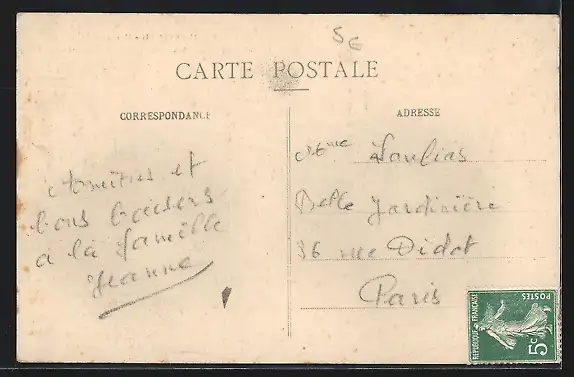 5€
CARTE POSTALE
CORRESPONDANCE
ADRESSE
Amitiés et
bons baisers
à la famille
Jeanne
Mme Laulias
Belle Jardinière
36 rue Didot
Paris
POSTES
RÉPUBLIQUE FRANÇAISE
5c